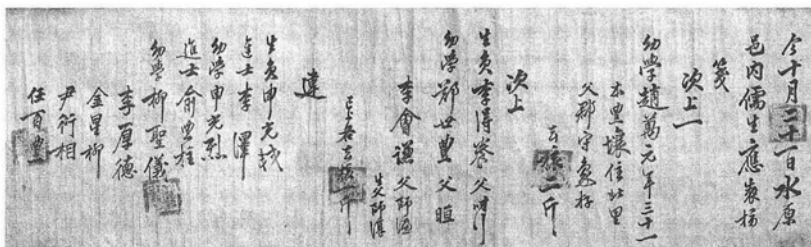 今十月二十一日水原
邑內儒生應製榜
箋
次上一
幼學趙萬元年三十一
本豊壤住北里
父郡守
次上
生員李得養父
幼學鄭世豊父晅
李會謙父師
生父師
達
生員申光
進士李澤
幼學申光烈
進士俞豊柱
幼學柳聖儀
李厚德
金星柳
尹行相
任百豊